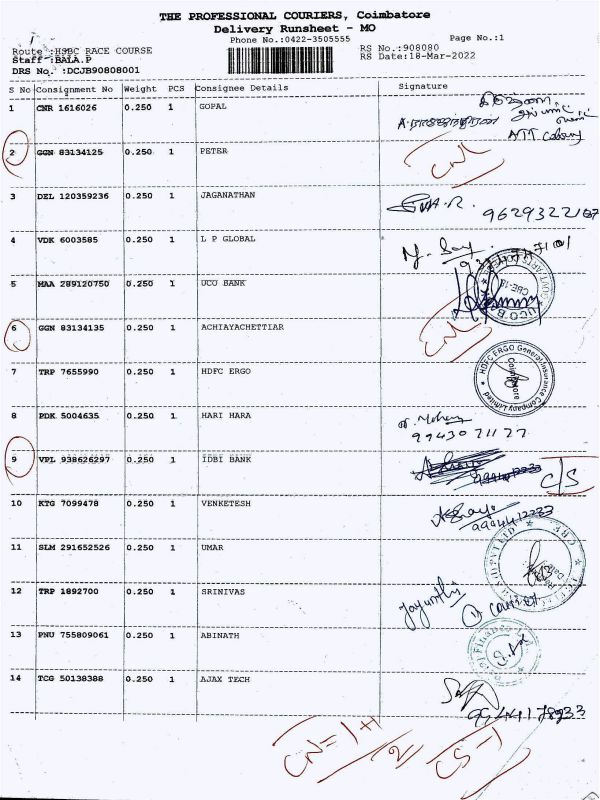 THE PROFESSIONAL COURIERS, Coimbatore
Delivery Runsheet - MO
Phone No.:0422-3505555
Page No.:1
Route :HSBC RACE COURSE
RS No.:908080
Staff :BALA.P
RS Date:18-Mar-2022
DRS No. :DCJB90808001
S No Consignment No Weight PCS Consignee Details Signature
1 CNR 1616026 0.250 1 GOPAL
ATT Colony
2 GGN 83134125 0.250 1 PETER
3 DEL 120359236 0.250 1 JAGANATHAN
4 VDK 6003585 0.250 1 L P GLOBAL
5 MAA 289120750 0.250 1 UCO BANK
6 GGN 83134135 0.250 1 ACHIAYACHETTIAR
7 TRP 7655990 0.250 1 HDFC ERGO
HDFC ERGO General Insurance Company Limited
Coimbatore
8 PDK 5004635 0.250 1 HARI HARA
9943071127
9 VPL 938626297 0.250 1 IDBI BANK
C/S
10 KTG 7099478 0.250 1 VENKETESH
9944412233
11 SLM 291652526 0.250 1 UMAR
12 TRP 1892700 0.250 1 SRINIVAS
13 PNU 755809061 0.250 1 ABINATH
14 TCG 50138388 0.250 1 AJAX TECH